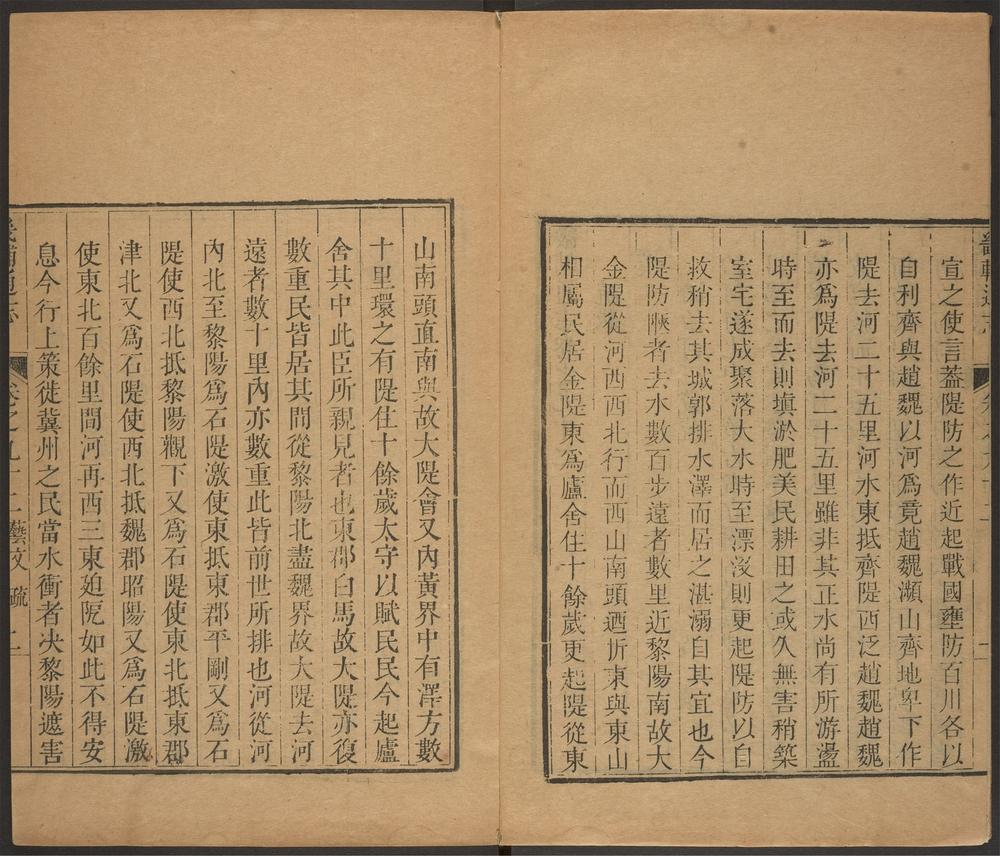 宣之使言蓋隄防之作近起戰國壅防百川各以
自利齊與趙魏以河爲竟趙魏瀕山齊地卑下作
隄去河二十五里河水東抵齊隄西泛趙魏趙魏
亦爲隄去河二十五里雖非其正水尚有所游盪
時至而去則塡淤肥美民耕田之或久無害稍築
室宅遂成聚落大水時至漂沒則更起隄防以自
救稍去其城郭排水澤而居之湛溺自其宜也今
隄防陿者去水數百步遠者數里近黎陽南故大
金隄從河西西北行而西山南頭迺折東與東山
相屬民居金隄東爲廬舍住十餘歲更起隄從東
山南頭直南與故大隄會又內黃界中有澤方數
十里環之有隄住十餘歲太守以賦民民今起廬
舍其中此臣所親見者也東郡白馬故大隄亦復
數重民皆居其間從黎陽北盡魏界故大隄去河
遠者數十里內亦數重此皆前世所排也河從河
內北至黎陽爲石隄激使東抵東郡平剛又爲石
隄使西北抵黎陽觀下又爲石隄使東北抵東郡
津北又爲石隄使西北抵魏郡昭陽又爲石隄激
使東北百餘里間河再西三東廹阨如此不得安
息今行上策徙冀州之民當水衝者决黎陽遮害
卷之九十二 藝文 疏 二